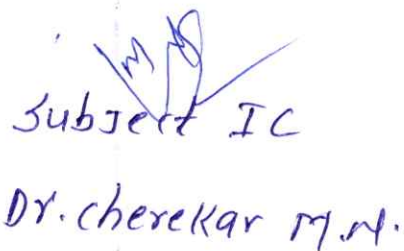 Subject IC
Dr. Cherekar M.N.